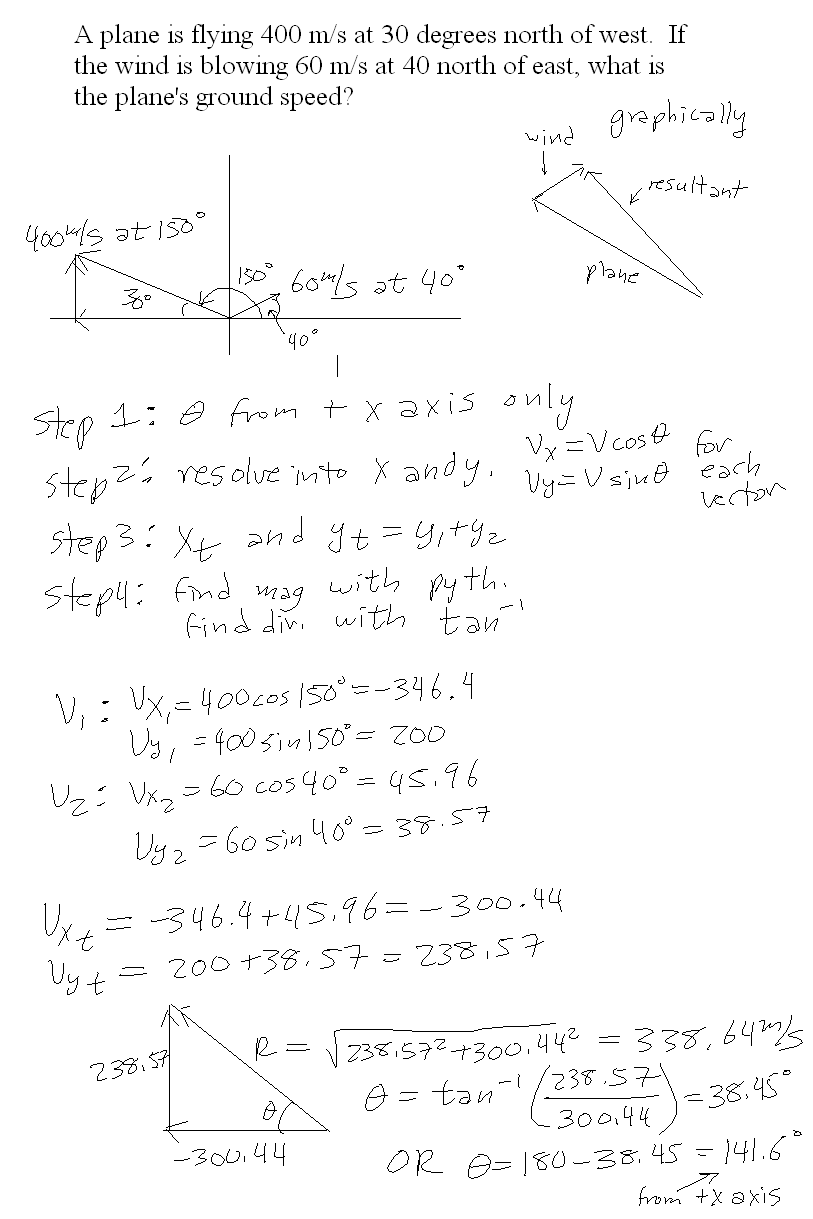 A plane is flying 400 m/s at 30 degrees north of west. If
the wind is blowing 60 m/s at 40 north of east, what is
the plane's ground speed?
graphically
wind
resultant
plane
400m/s at 150°
30°
150°
60m/s at 40°
40°
Step 1: θ from + x axis only
step 2: resolve into x and y. Vx = V cos θ for
Vy = V sin θ each
vector
step 3: Xt and yt = y1+y2
step 4: find mag with pyth.
find dir. with tan⁻¹
V1: Vx1 = 400 cos 150° = -346.4
Vy1 = 400 sin 150° = 200
V2: Vx2 = 60 cos 40° = 45.96
Vy2 = 60 sin 40° = 38.57
Vxt = -346.4 + 45.96 = -300.44
Vyt = 200 + 38.57 = 238.57
238.57
θ
-300.44
R = √238.57² + 300.44² = 338.64 m/s
θ = tan⁻¹ (238.57/300.44) = 38.45°
OR θ = 180 - 38.45 = 141.6°
from +x axis